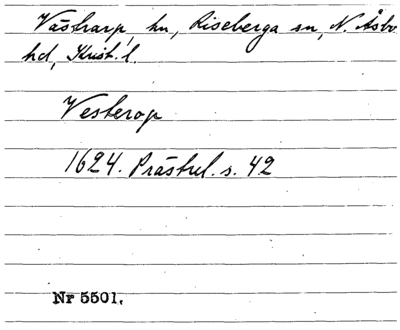 Västrarp, hn, Riseberga sn, N. Åsbo
hd, Krist. l.
Vesterop
1624. Prästrel. s. 42
Nr 5501.